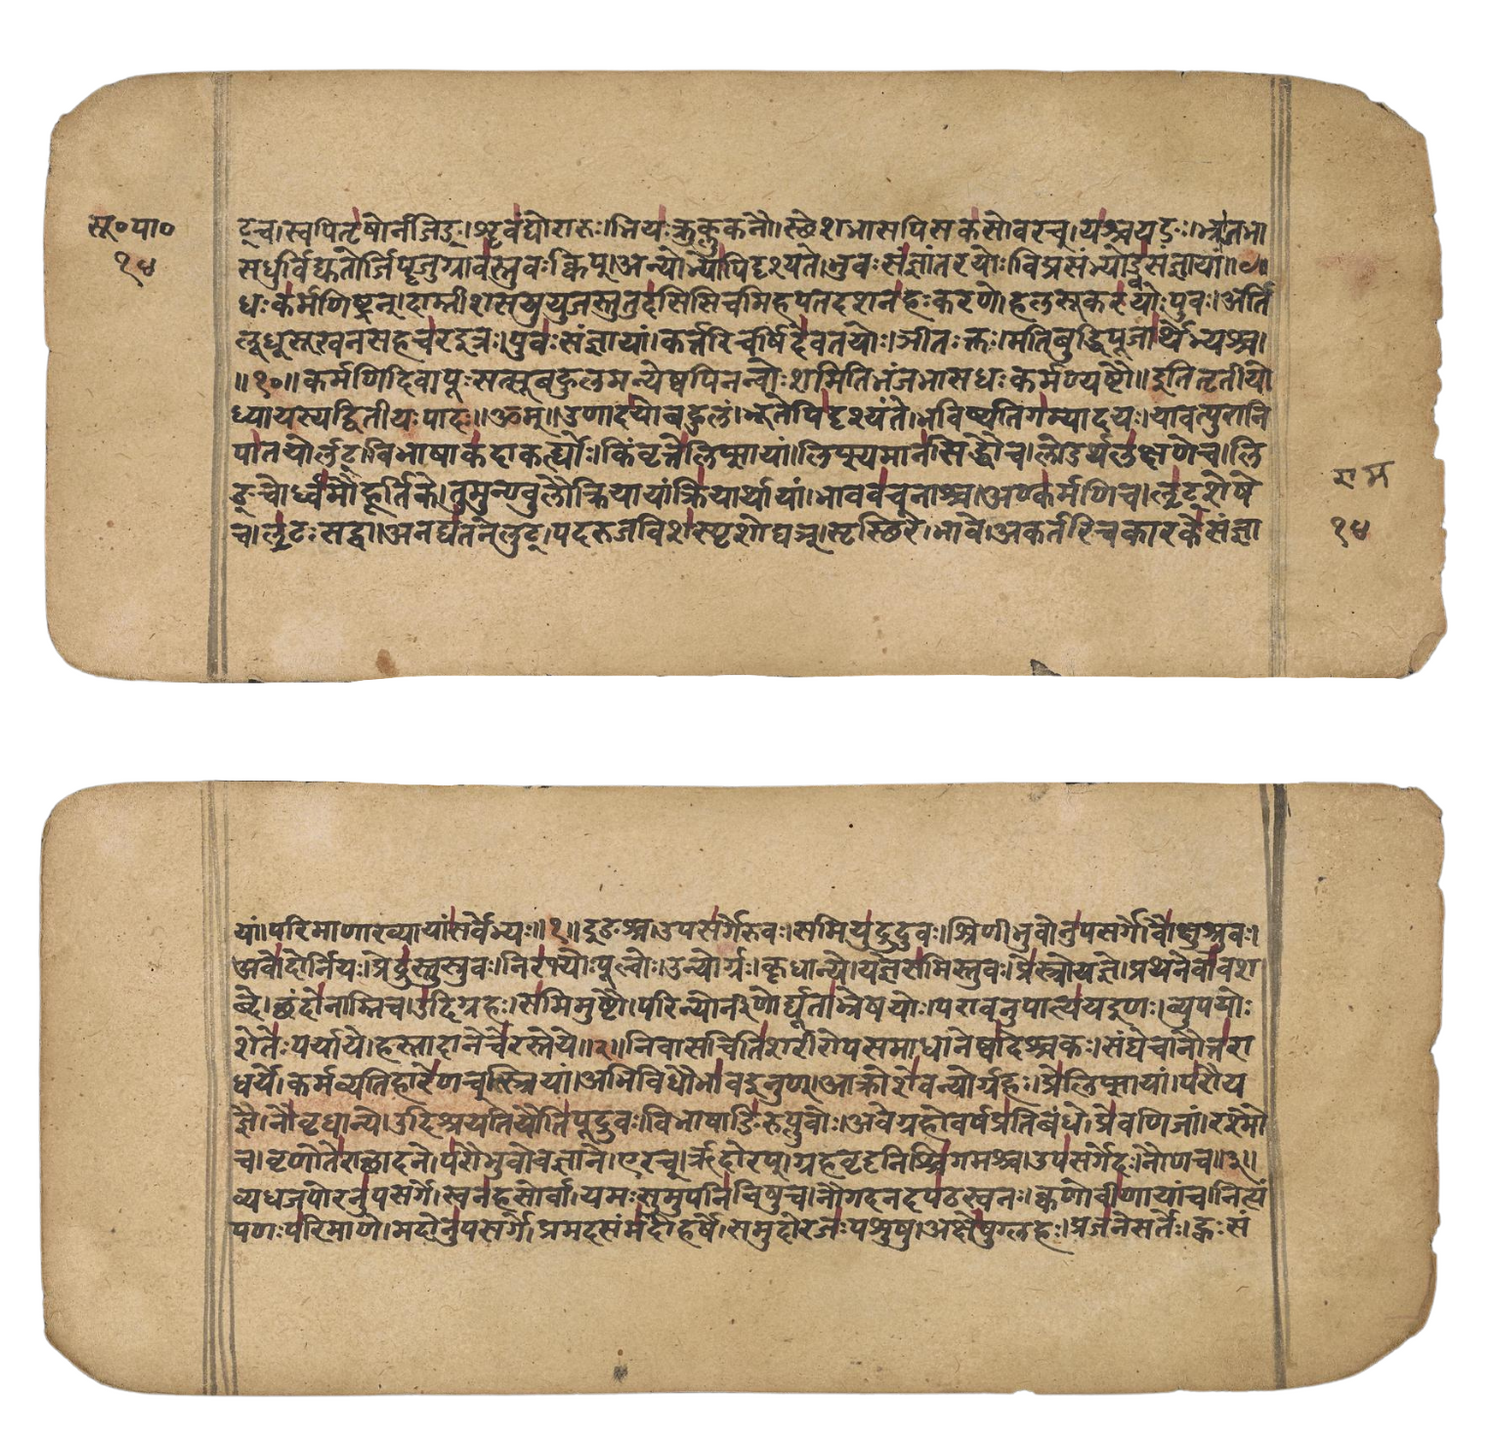 सू०पा०
१४
ट्च।स्वपितृषोर्नजिङ्।शॄवंद्योरारुः।भियःक्रुक्लुकनौ।स्थेशभासपिसकसोवरच्।यश्चयङः।भ्राजभा
सधुर्विद्युतोर्जिपॄजुग्रावस्तुवःक्विप्।अन्येभ्योपिदृश्यते।भुवःसंज्ञांतरयोः।विप्रसंभ्योड्वसंज्ञायां॥९॥
धःकर्मणिष्ट्रन्।दाम्नीशसयुयुजस्तुतुदसिसिचमिहपतदशनहःकरणे।हलसूकरयोःपुवः।अर्ति
लूधूसूखनसहचरइत्रः।पुवःसंज्ञायां।कर्त्तरिचर्षिदेवतयोः।ञीतःक्तः।मतिबुद्धिपूजार्थेभ्यश्च।
॥१०॥कर्मणिदिवापूःसत्सूबहुलमन्येष्वपिनन्वोःशमितिभंजभासधःकर्मण्यष्टौ॥इतितृतीया
ध्यायस्यद्वितीयःपादः॥ॐम्॥उणादयोबहुलं।भूतेपिदृश्यंते।भविष्यतिगम्यादयः।यावत्पुरानि
पातयोर्लट्।विभाषाकदाकर्ह्योः।किंवृत्तेलिप्सायां।लिप्स्यमानसिद्धौच।लोडर्थलक्षणेच।लि
ङ्चोर्ध्वमौहूर्तिके।तुमुन्ण्वुलौक्रियायांक्रियार्थायां।भाववचनाश्च।अण्कर्मणिच।लृट्शेषे
च।लृटःसद्वा।अनद्यतनेलुट्।पदरुजविशस्पृशोघञ्।सृस्थिरे।भावे।अकर्तरिचकारकेसंज्ञा
राम
१४
यां।परिमाणाख्यायांसर्वेभ्यः॥१॥इङश्च।उपसर्गेरुवः।समियुद्रुदुवः।श्रिणीभुवोनुपसर्गे।वौक्षुश्रुवः।
अवोदोर्नियः।प्रेद्रुस्तुस्रुवः।निरभ्योःपूल्वोः।उन्न्योर्ग्रः।कॄधान्ये।यज्ञेसमिस्तुवः।प्रेस्त्रोयज्ञे।प्रथनेवावश
ब्दे।छंदोनाम्निच।उदिग्रहः।समिमुष्टौ।परिन्योर्नीणोर्द्यूताभ्रेषयोः।परावनुपात्ययइणः।व्युपयोः
शेतेःपर्याये।हस्तादानेचेरस्तेये॥२॥निवासचितिशरीरोपसमाधानेष्वादेश्चकः।संघेचानौत्तरा
धर्ये।कर्मव्यतिहारेणच्स्त्रियां।अभिविधौभावइनुण्।आक्रोशेवन्योर्ग्रहः।प्रेलिप्सायां।परौय
ज्ञे।नौवृधान्ये।उदिश्रयतियौतिपूद्रुवः।विभाषाङिरुप्लुवोः।अवेग्रहोवर्षप्रतिबंधे।प्रेवणिजां।रश्मौ
च।वृणोतेराछादने।परौभुवोवज्ञाने।एरच्।ॠदोरप्।ग्रहवृदृनिश्चिगमश्च।उपसर्गेदः।नौणच॥३॥
व्यधजपोरनुपसर्गे।स्वनहसोर्वा।यमःसमुपनिविषुच।नौगदनदपठस्वनः।क्वणोवीणायांच।नित्यं
पणःपरिमाणे।मदोनुपसर्गे।प्रमदसंमदौहर्षे।समुदोरजःपशुषु।अक्षेषुग्लहः।प्रजनेसर्तेः।ह्वःसं